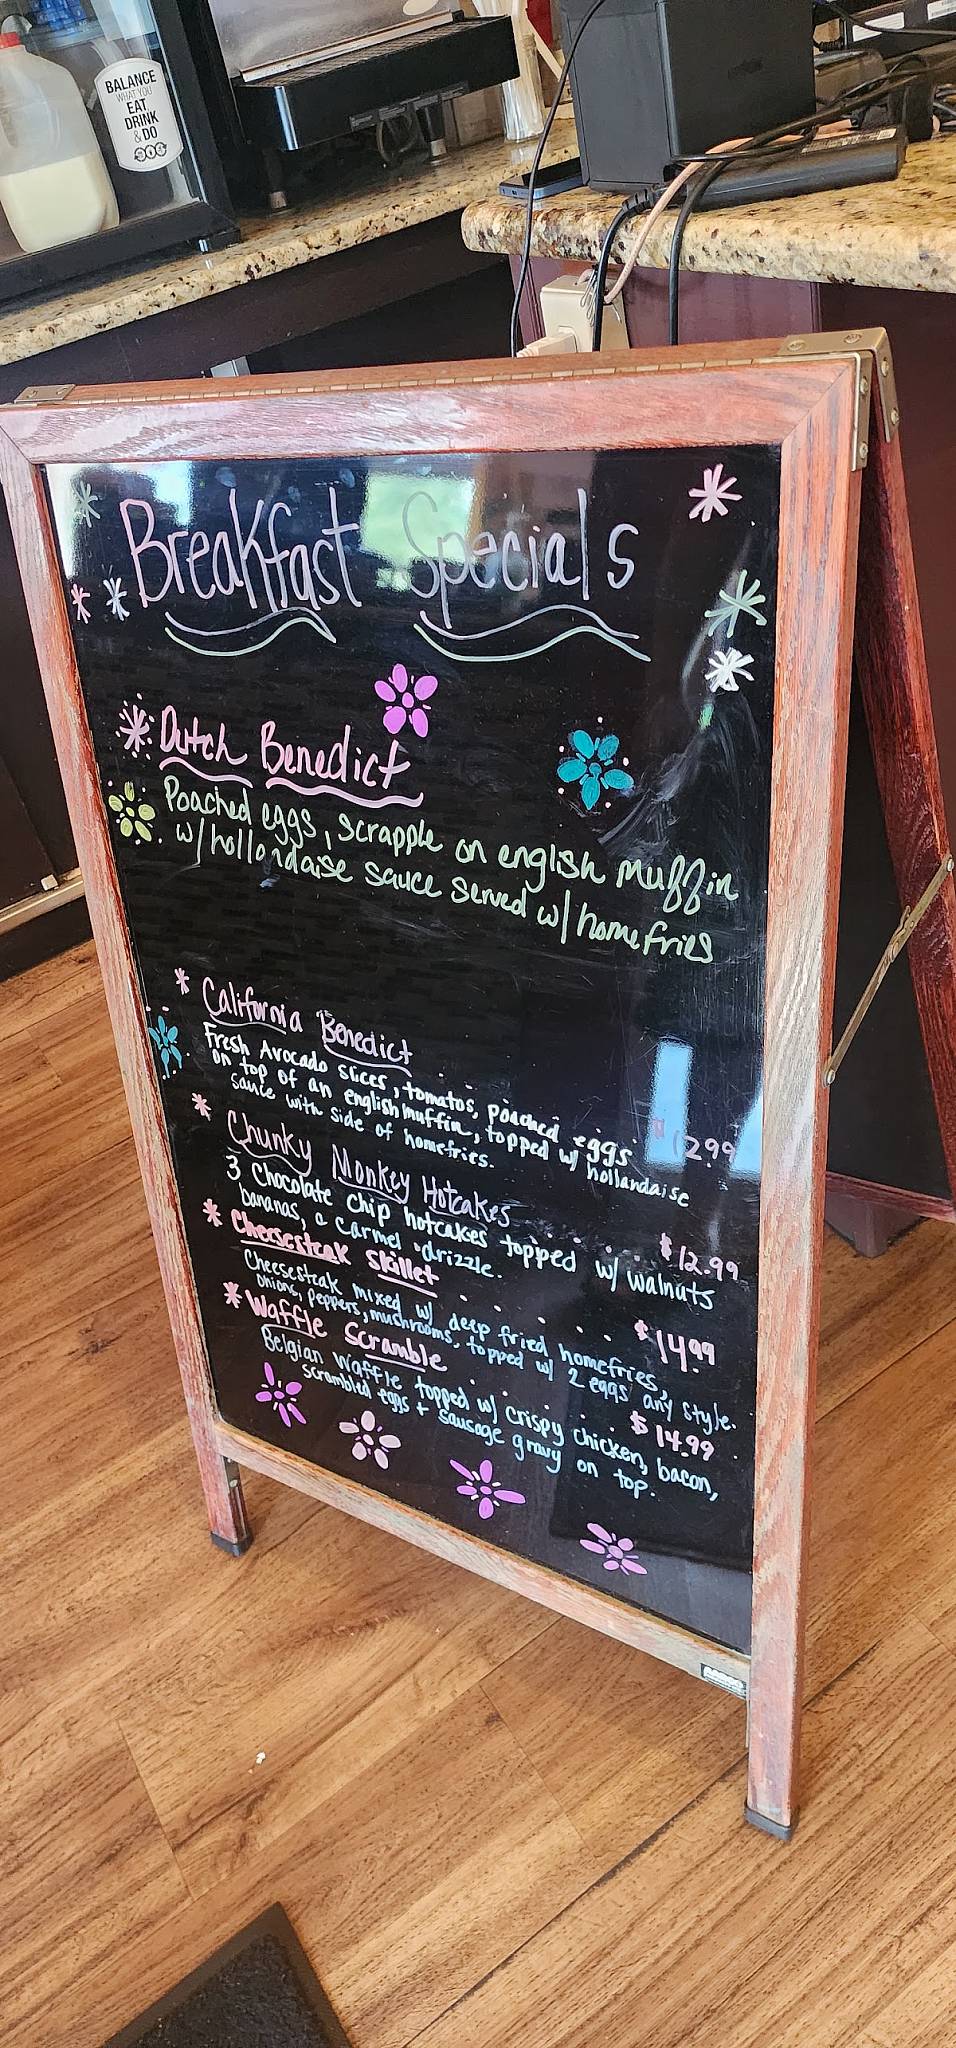 BALANCE
WHAT YOU
EAT,
DRINK
& DO
Breakfast Specials
Dutch Benedict
Poached eggs, scrapple on english muffin
w/hollandaise sauce served w/ homefries
California Benedict . . . . . $12.99
Fresh Avocado slices, tomatos, poached eggs
on top of an english muffin, topped w/ hollandaise
sauce with side of homefries.
Chunky Monkey Hotcakes . . . . . $12.99
3 Chocolate Chip hotcakes topped w/ walnuts
bananas, a carmel drizzle.
Cheesesteak Skillet . . . . . . $14.99
Cheesesteak mixed w/ deep fried homefries,
onions, peppers, mushrooms, topped w/ 2 eggs any style.
Waffle Scramble . . . . . $14.99
Belgian Waffle topped w/ crispy chicken, bacon,
scrambled eggs + sausage gravy on top.